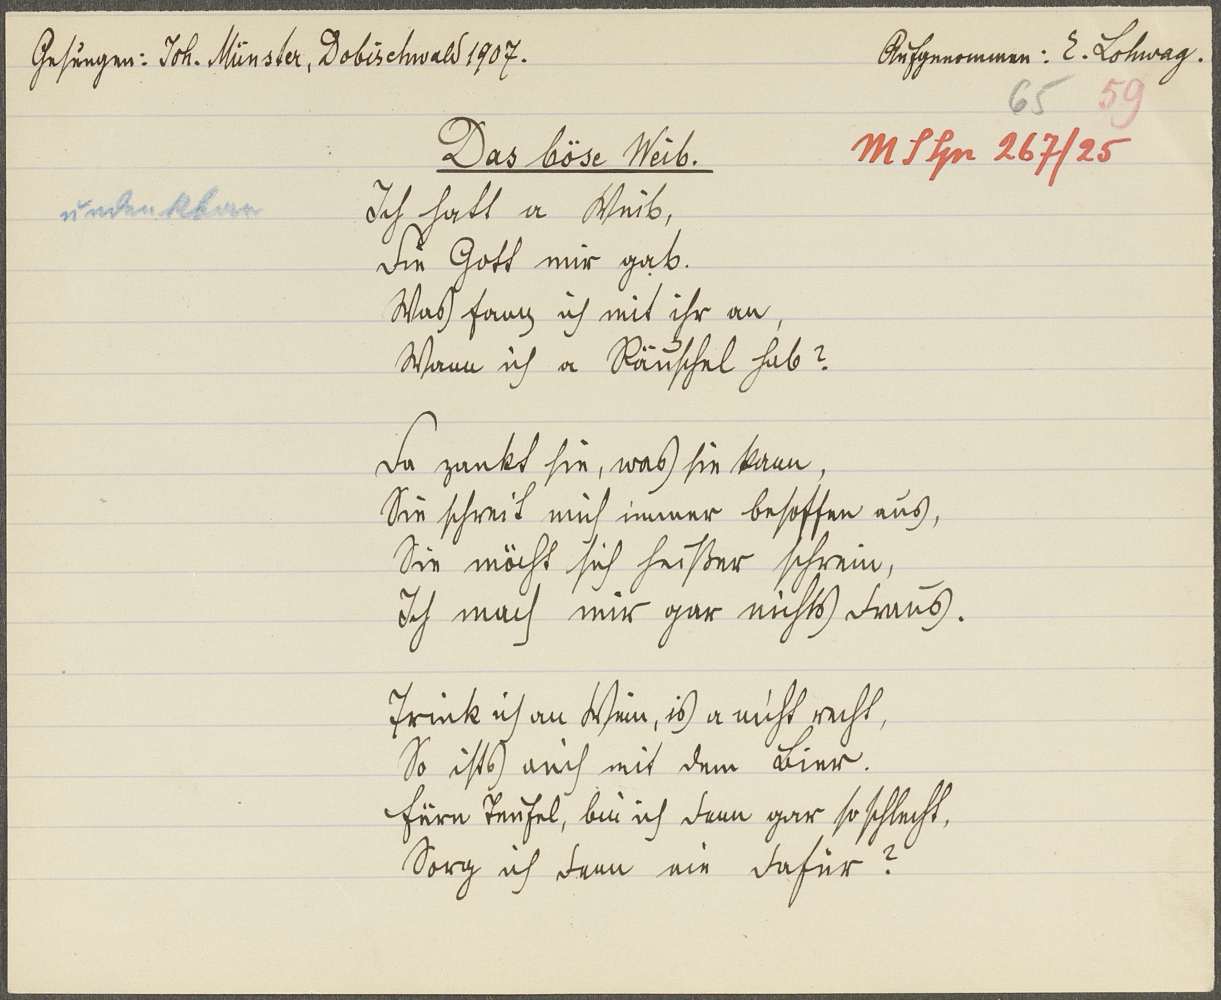 Gesungen: Joh. Münster, Dobischwald 1907.
Aufgenommen: E. Lohwag.
65 59
Das böse Weib.
267/25
undenkbar
Ich hatt a Weib,
Die Gott mir gab.
Was fang ich mit ihr an,
Wann ich a Räuschel hab?
Da zankt sie, was sie kann,
Sie schreit mich immer besoffen aus,
Sie möcht sich heißer schrein,
Ich mach mir gar nichts draus.
Trink ich an Wein, is a nicht recht,
So ists auch mit dem Bier.
Fürn Teufel, bin ich denn gar so schlecht,
Sorg ich denn nie dafür?